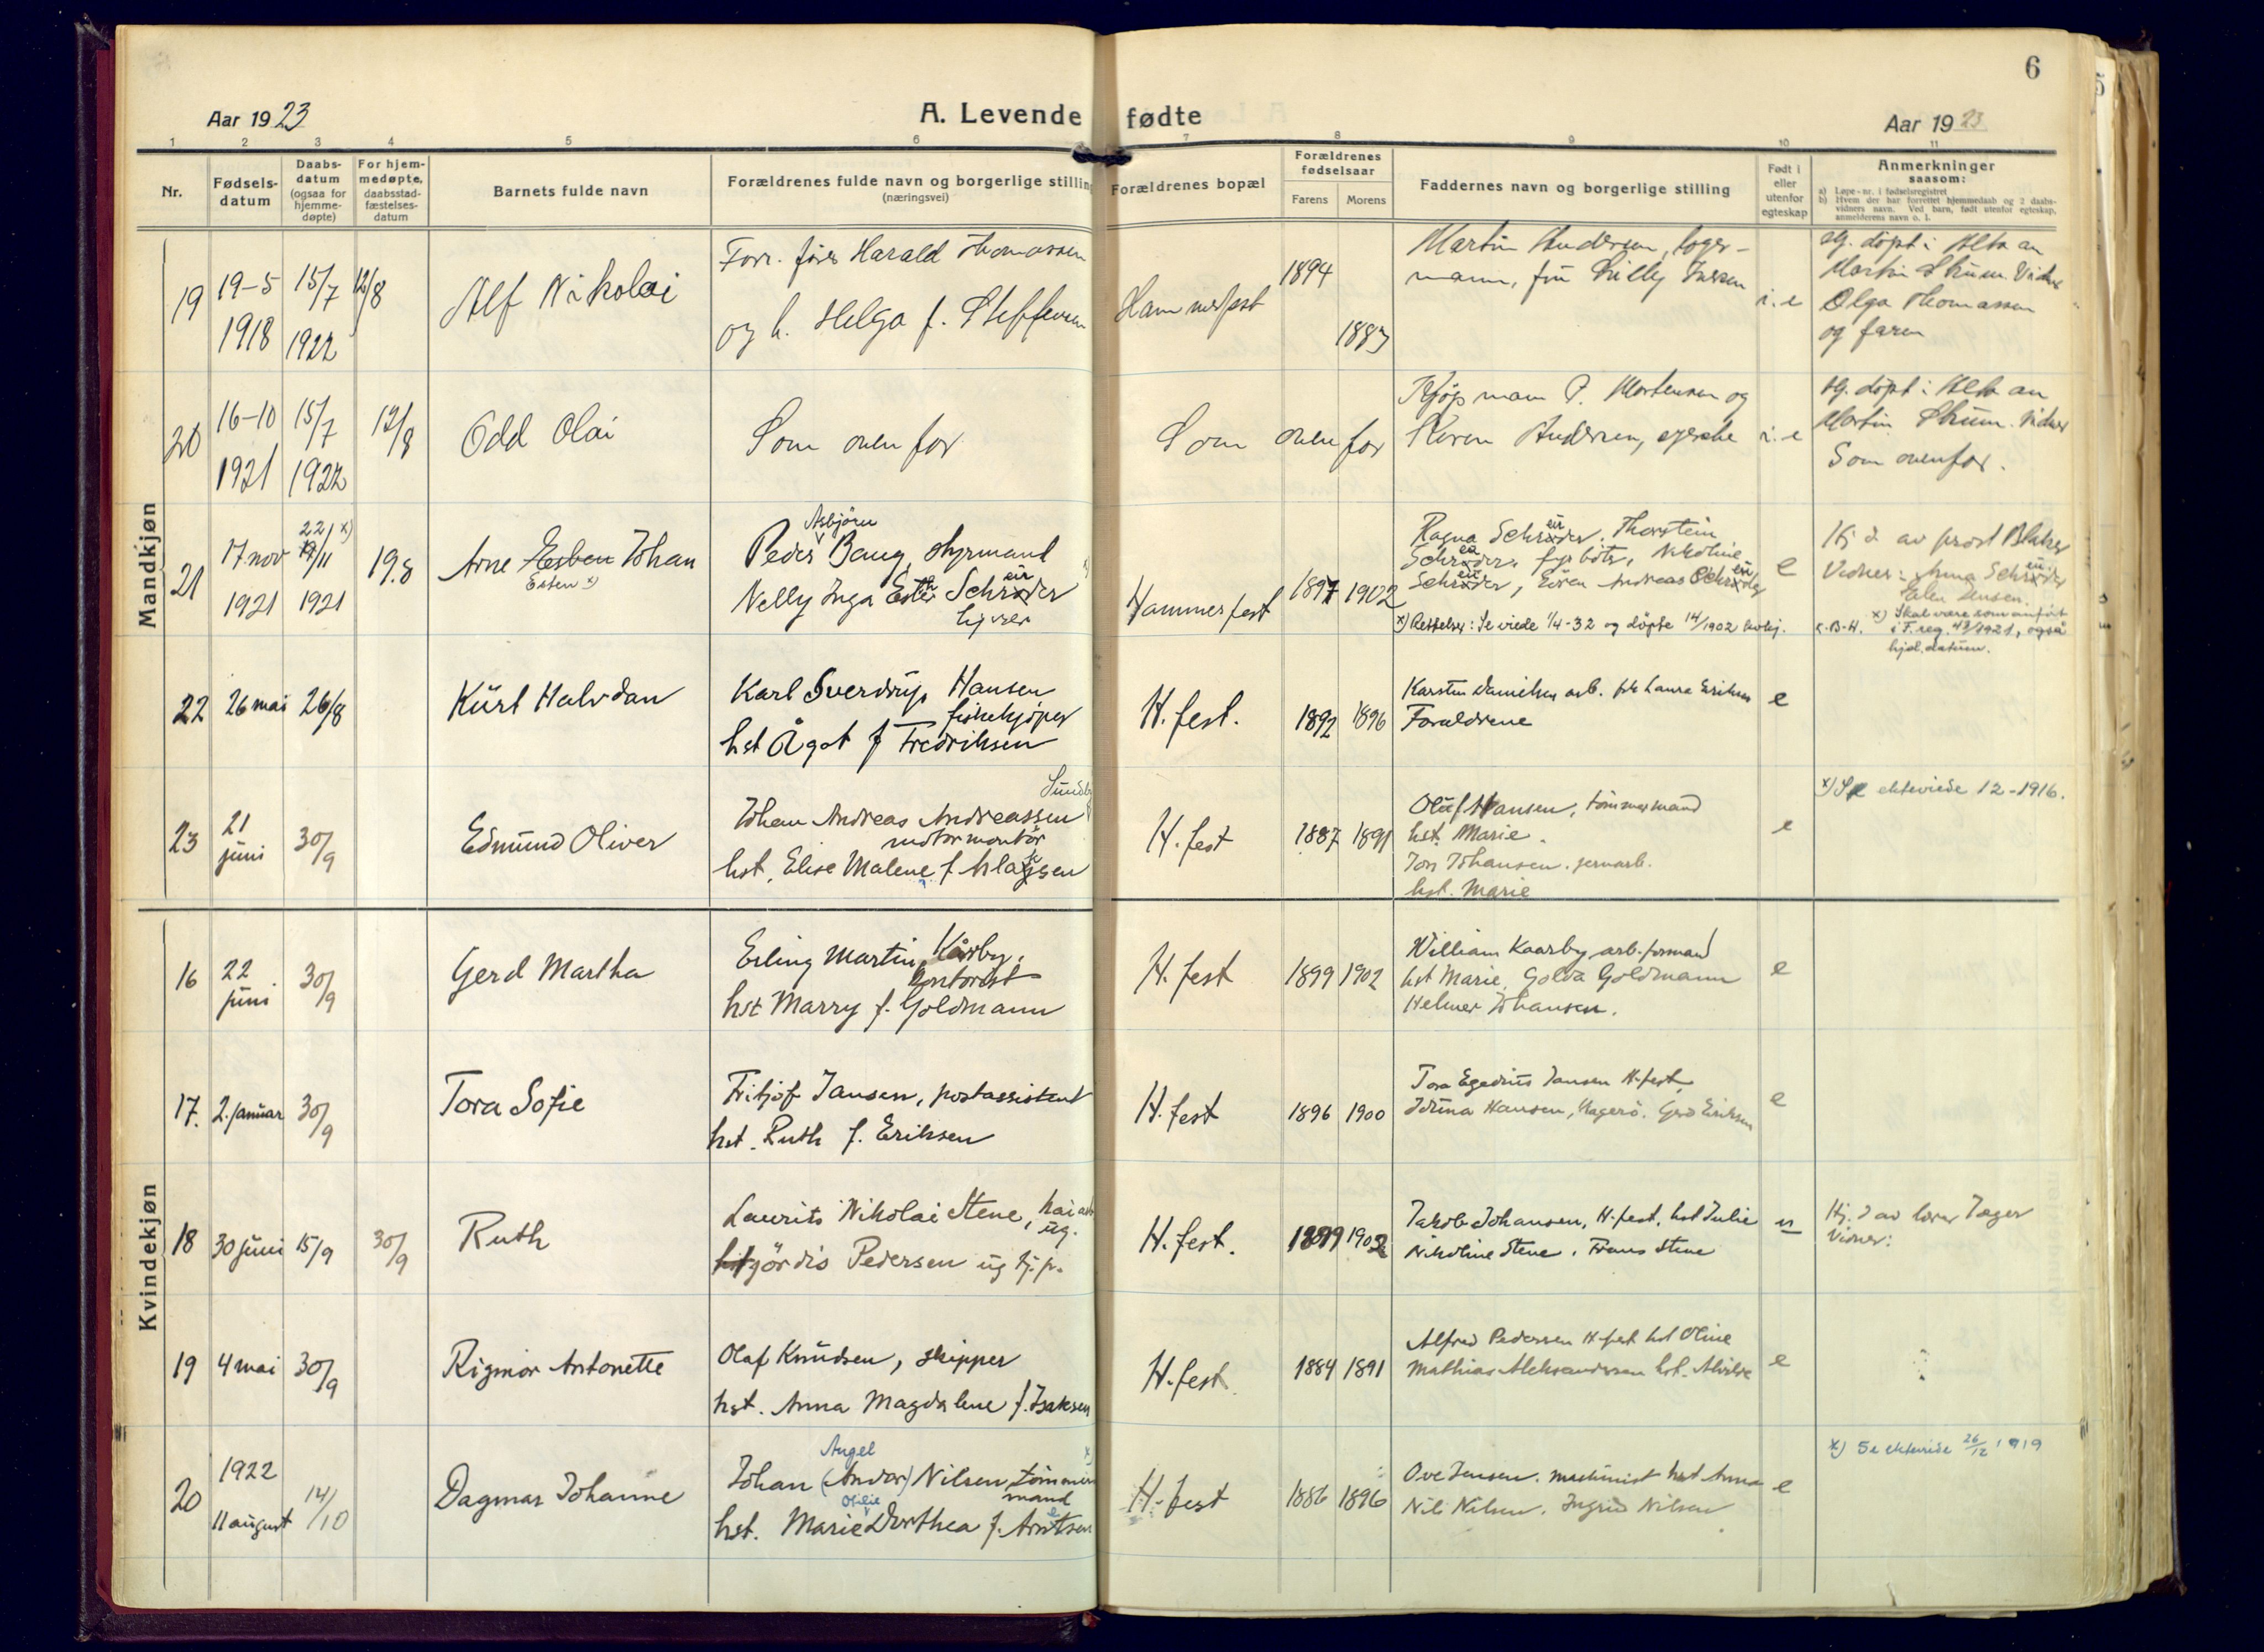 6
Aar 1923
A. Levende fødte
Aar 1923
1 2 3 4 5 6 7 8 9 10 11
Nr.
Fødsels-
datum
Daabs-
datum
(ogsaa for
hjemme-
døpte)
For hjem-
medøpte,
daabsstad-
fæstelses-
datum
Barnets fulde navn
Forældrenes fulde navn og borgerlige stilling
(næringsvei)
Forældrenes bopæl
Forældrenes
fødselsaar
Farens Morens
Faddernes navn og borgerlige stilling
Født i
eller
utenfor
egteskap
Anmerkninger
saasom:
a) Løpe-nr. i fødselsregistret
b) Hvem der har forrettet hjemmedaab og 2 daabs-
vidners navn. Ved barn, født utenfor egteskap,
anmelderens navn o. l.
Mandkjøn
19
19-5
1918
15/7
1922
12/8
Alf Nikolai
Forr. fører Harald Thomassen
og h. Helga f. Steffensen
Hammerfest
1894
1883
Martin Andersen, lager-
mann, frü Lilly
i. e
Hj. døpt i Alta av
Martin Strüm. Vidner
Olga Thomassen
og faren
20
16-10
1921
15/7
1922
12/8
Odd Olai
Som ovenfor
Som ovenfor
Kjøpmann P. Mortensen og
Karen Andersen,
i. e
Hj. døpt i Alta av
Martin Strüm. Vidner
Som ovenfor.
21
17 nov
1921
22/11 x)
1921
19.8
Arne Esben Johan
Esten x)
Asbjörn
Peder Baug, styrmand
Nelly Inga Ester Schrøder
eii
Hammerfest
1897 1902
Ragna Schrøder, Thorstein
Schrøder, fyrböter, Nikoline
Schrøder, Andreas Schrøder
x) Rettelser: Se viede 1/4-32 og döpte 14/1902
e
Hj d. av prost Balke
Vidner: Anna Schrøder
Jensen.
x) Skal være som anfört
i F.reg. 43/1921, også
hjd. datüm.
22
26 mai
26/8
Kürt Halvdan
Karl Sverdrüp Hansen
fiskekjöper
hst Ågot f Fredriksen
H.fest.
1892 1896
Karsten Danielsen arb. frk Laura Eriksen
Forældrene
e
23
21
jüni
30/9
Edmünd Oliver
Johan Andreas Andreassen
motormontör
hst. Elise Malene f. Klausen
H.fest
1887 1891
Olüf Hansen, tömmermand
hst. Marie.
Johansen. jernarb.
hst. Marie
e
x) Se ekteviede 12-1916.
Kvindekjøn
16
22
jüni
30/9
Gerd Martha
Erling Martin Kårby,
kontorist
hst Marry f. Goldmann
H.fest
1899 1902
William Kaarby arb.formand
hst Marie, Golda Goldmann
Helmer Johansen.
e
17.
2. janüar
30/9
Tora Sofie
Fritjof Jansen, postassistent
hst. Ruth f. Eriksen
H.fest
1896 1900
Tora Egedius Jansen H.fest,
Hansen, Magerö. Gerd Eriksen
e
18
30 jüni
15/9
30/9
Ruth
Laurits Nikolai Stene, kaiarb
üg.
Hjördis Pedersen üg tj.p.
H.fest.
1899 1902
Jakob Johansen, H.fest, hst Julie
Nikoline Stene, Frans Stene
u
Hj. d av lærer Jæger
Vidner:
19
4 mai
30/9
Rigmor Antonette
Olaf Knüdsen, skipper
hst. Anna Magdalene f. Isaksen
H.fest
1884 1891
Alfred Pedersen H.fest hst Oline
Mathias Aleksandersen hst. Alvilde
e
20
1922
11 august
14/10
Dagmar Johanne
Angel
Johan (Andor) Nilsen, tömmer x)
mand
Otilie
hst. Marie Dorthea f. Arntsen
H.fest
1886 1896
Ove Jensen, maskinist hst Anna
Nils Nilsen. Ingrid Nilsen
e
x) Se ekteviede 26/12 1919